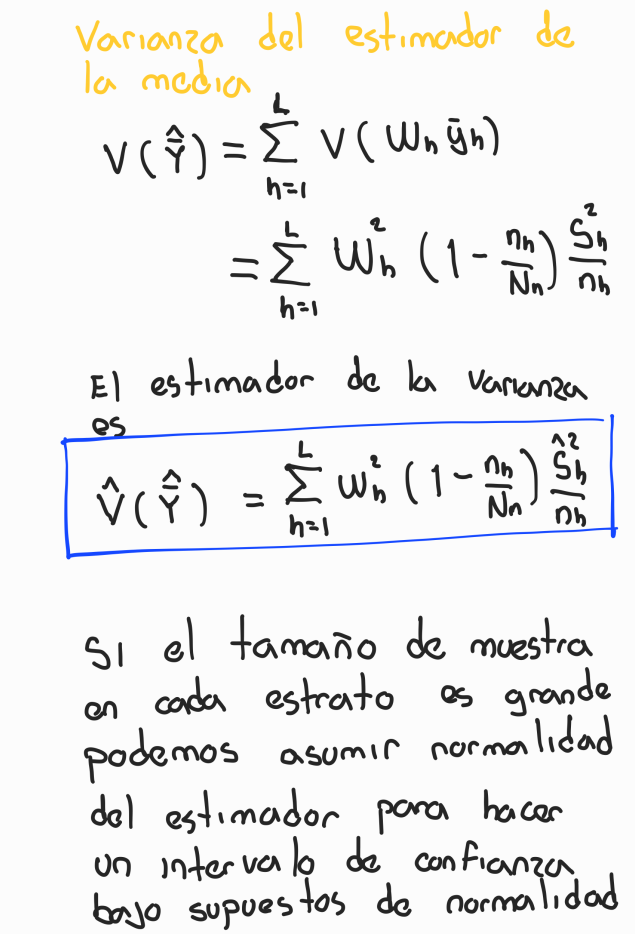 Varianza del estimador de
la media
V(\hat{\bar{Y}}) = \sum_{h=1}^{L} V(W_h \bar{y}_h)
= \sum_{h=1}^{L} W_h^2 (1 - \frac{n_h}{N_h}) \frac{S_h^2}{n_h}
El estimador de la varianza
es
\hat{V}(\hat{\bar{Y}}) = \sum_{h=1}^{L} W_h^2 (1 - \frac{n_h}{N_h}) \frac{\hat{S}_h^2}{n_h}
Si el tamaño de muestra
en cada estrato es grande
podemos asumir normalidad
del estimador para hacer
un intervalo de confianza
bajo supuestos de normalidad